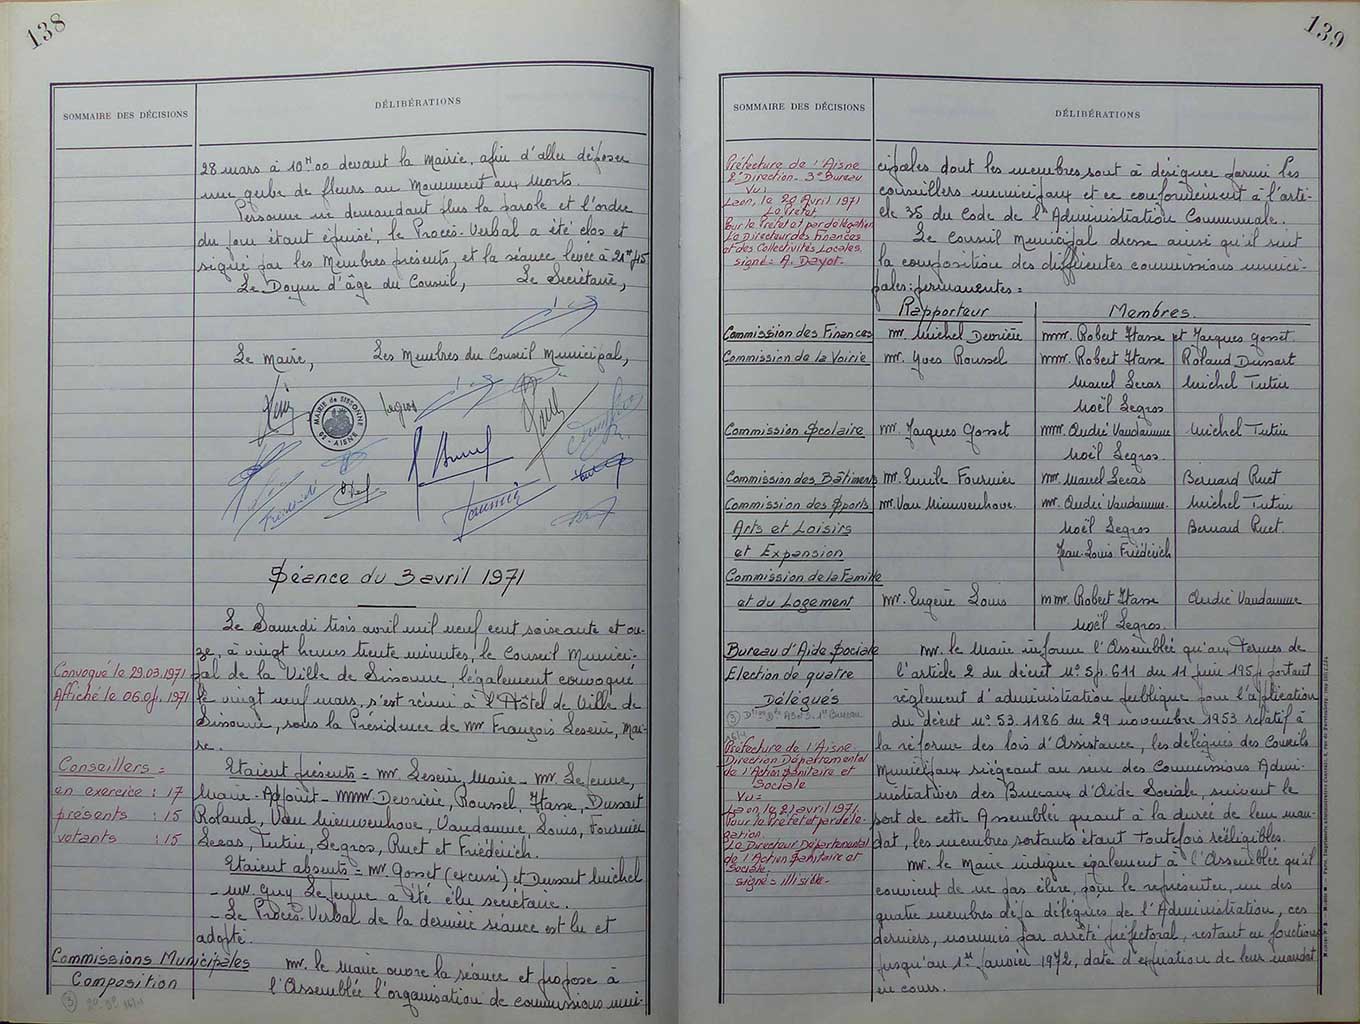 138
SOMMAIRE DES DÉCISIONS
DÉLIBÉRATIONS
28 mars à 10H00 devant la Mairie, afin d'aller déposer
une gerbe de fleurs au Monument aux Morts.
Personne ne demandant plus la parole et l'ordre
du jour étant épuisé, le Procès-Verbal a été clos et
signé par les Membres présents, et la séance levée à 21H45
Le Doyen d'âge du Conseil, Le Secrétaire,
Le Maire, Les Membres du Conseil Municipal,
MAIRIE de SISSONNE
02 - AISNE
Legros
Friédérich
Séance du 3 avril 1971
Le Samedi trois avril mil neuf cent soixante et on-
ze, à vingt heures trente minutes, le Conseil Munici-
pal de la Ville de Sissonne, légalement convoqué
Convoqué le 29.03.1971
Affiché le 1971
le vingt neuf mars, s'est réuni à l'Hôtel de Ville de
Sissonne, sous la Présidence de mr François Leseur, Mai-
re.
Conseillers =
en exercice : 17
présents : 15
votants : 15
Etaient présents = mr. Leseur, Maire - mr Lejeune,
Maire-Adjoint - mmr Devrière, Roussel, Hasse, Dussart
Roland, Van Nieuvenhove, Vandamme, Louis, Fournier
Lecas, Tutin, Legros, Ruet et Friédérich.
Etaient absents = mr Gosset (excusé) et Dussart Michel
- mr. Guy Lejeune a été élu secrétaire.
- Le Procès-Verbal de la dernière séance est lu et
adopté.
Commissions Municipales
Composition
mr. le Maire ouvre la séance et propose à
l'Assemblée l'organisation de commissions muni-
139
SOMMAIRE DES DÉCISIONS
DÉLIBÉRATIONS
Préfecture de l'Aisne
2e Direction - 3e Bureau
Vu :
Laon, le 28 Avril 1971
Le Préfet
Pour le Préfet et par délégation
Le Directeur des Finances
et des Collectivités Locales.
signé = A. Dayot.
cipales dont les membres sont à désigner parmi les
conseillers municipaux et ce conformément à l'arti-
cle 35 du Code de l'Administration Communale.
Le Conseil Municipal dresse ainsi qu'il suit
la composition des différentes commissions munici-
pales : permanentes =
Rapporteur Membres.
Commission des Finances mr. Michel Devrière mmr. Robert Hasse et Jacques Gosset.
Commission de la Voirie mr. Yves Roussel mmr. Robert Hasse Roland Dussart
Marcel Lecas Michel Tutin
Noël Legros
Commission Scolaire mr. Jacques Gosset mmr. André Vandamme Michel Tutin
Noël Legros.
Commission des Bâtiments mr. Emile Fournier mr. Marcel Lecas Bernard Ruet
Commission des Sports mr. Van Nieuvenhove. mr. André Vandamme. Michel Tutin
Arts et Loisirs Noël Legros Bernard Ruet.
et Expansion Jean-Louis Friédérich
Commission de la Famille
et du Logement mr. Eugène Louis mmr. Robert Hasse André Vandamme
Noël Legros.
Bureau d'Aide Sociale
Election de quatre
Délégués
mr. le Maire informe l'Assemblée qu'aux Termes de
l'article 2 du décret n° 54.611 du 11 juin 1954 portant
règlement d'administration publique pour l'application
du décret n° 53.1186 du 29 novembre 1953 relatif à
la réforme des lois d'Assistance, les délégués des Conseils
Municipaux siégeant au sein des Commissions Admi-
nistratives des Bureaux d'Aide Sociale, suivent le
sort de cette Assemblée quant à la durée de leur man-
dat, les membres sortants étant Toutefois rééligibles.
Préfecture de l'Aisne.
Direction Départemental
de l'Action Sanitaire et
Sociale
Vu =
Laon, le 21 avril 1971.
Pour le Préfet et par délé-
gation
Le Directeur Départemental
de l'Action Sanitaire et
Sociale.
signé = illisible.
mr. le Maire indique également à l'Assemblée qu'il
convient de ne pas élire, pour le représenter, un des
quatre membres déjà délégués de l'Administration, ces
derniers, nommés par arrêté préfectoral, restant en fonctions
jusqu'au 1er Janvier 1972, date d'expiration de leur mandat
en cours.